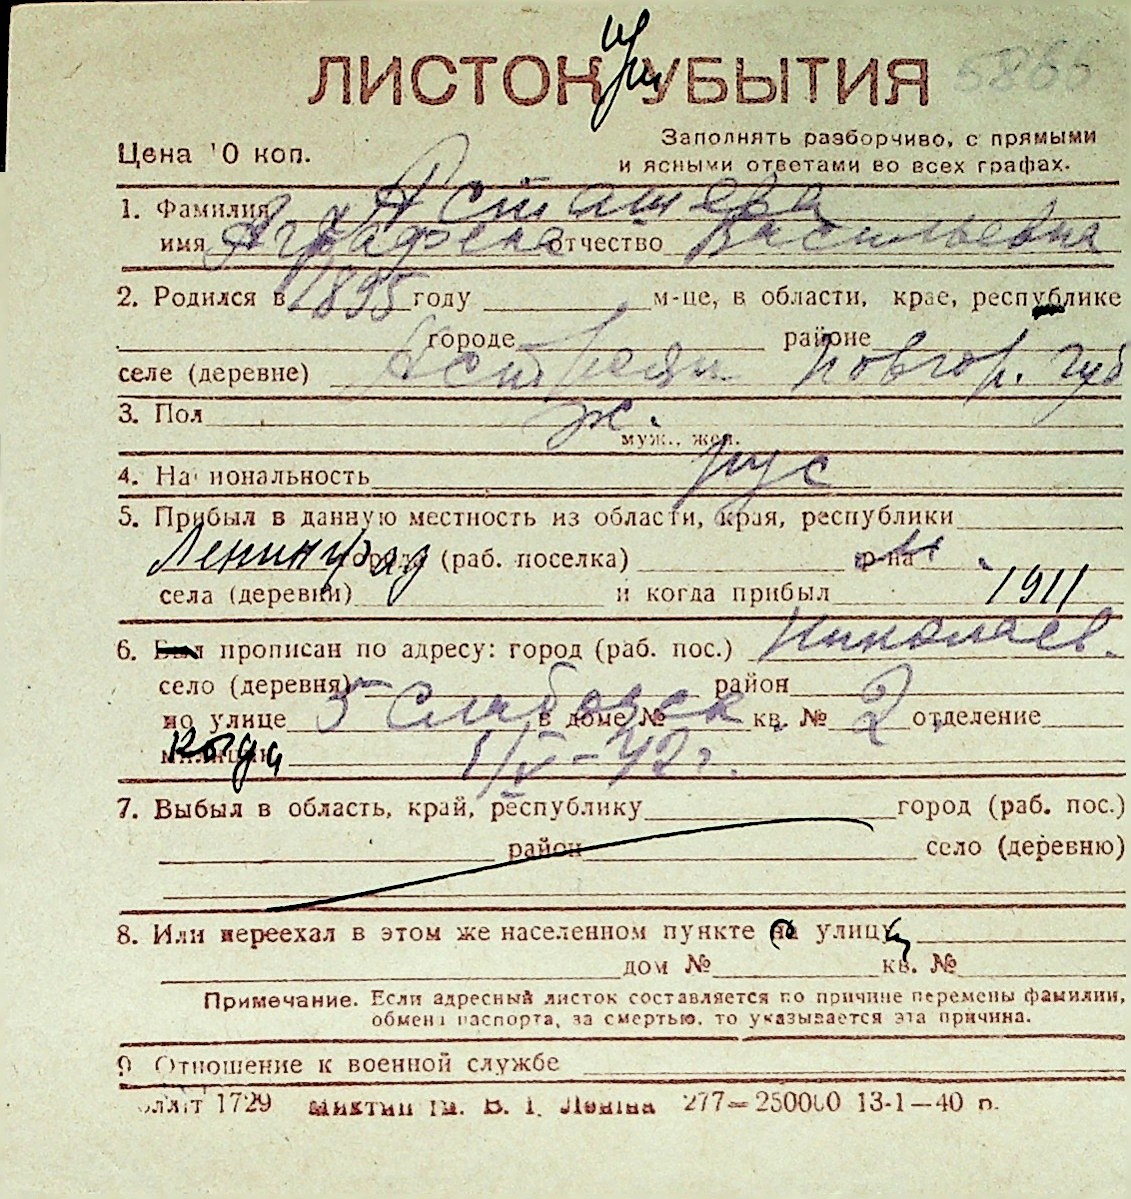 при
ЛИСТОК УБЫТИЯ 5866
Цена 10 коп. Заполнять разборчиво, с прямыми
и ясными ответами во всех графах.
1. Фамилия Асташева
имя Аграфена отчество Васильевна
2. Родился в 1895 году м-це, в области, крае, республике
городе районе
селе (деревне) Новгор. губ
3. Пол ж.
муж., жен.
4. Национальность рус
5. Прибыл в данную местность из области, края, республики
Ленинград города (раб. поселка) р-на
села (деревни) и когда прибыл 1911
6. Был прописан по адресу: город (раб. пос.) Николаев.
село (деревня) район
по улице 5 Слободск в доме № кв. № 2. отделение
милиции когда 1/IV-42 г.
7. Выбыл в область, край, республику город (раб. пос.)
район село (деревню)
8. Или переехал в этом же населенном пункте на улицу
дом № кв. №
Примечание. Если адресный листок составляется по причине перемены фамилии,
обмена паспорта, за смертью, то указывается эта причина.
9. Отношение к военной службе
1729 им. В. І. Леніна 277—250000 13-1—40 р.